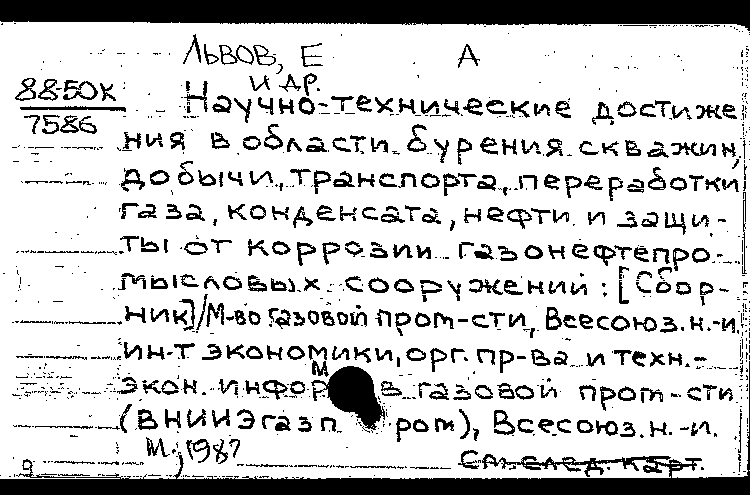 Львов, Е А
и др.
88-50К
7586
Научно-технические достиже
ния в области бурения скважин,
добычи, транспорта, переработки
газа, конденсата, нефти и защи-
ты от коррозии газонефтепро-
мысловых сооружений: [Сбор-
ник]/М-во газовой пром-сти, Всесоюз. н.-и.
ин-т экономики, орг. пр-ва и техн.-
экон. информ в газовой пром-сти
(ВНИИЭгазпром), Всесоюз. н.-и.
М., 1987
9 См. след. карт.